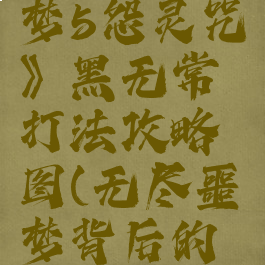 梦5怨灵咒
》黑无常
打法攻略
图(无尽噩
梦背后的